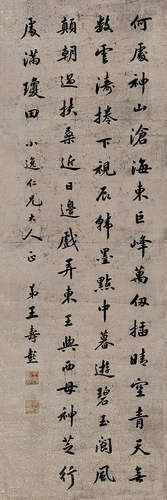 何處神山滄海東巨峰萬仞插晴空青天無
數雲濤捲下視辰韓墨點中暮遊碧玉閬風
顛朝過扶桑近日邊戲弄東王與西母神芝行
處滿瓊田 小逸仁兄大人正 弟王壽彭